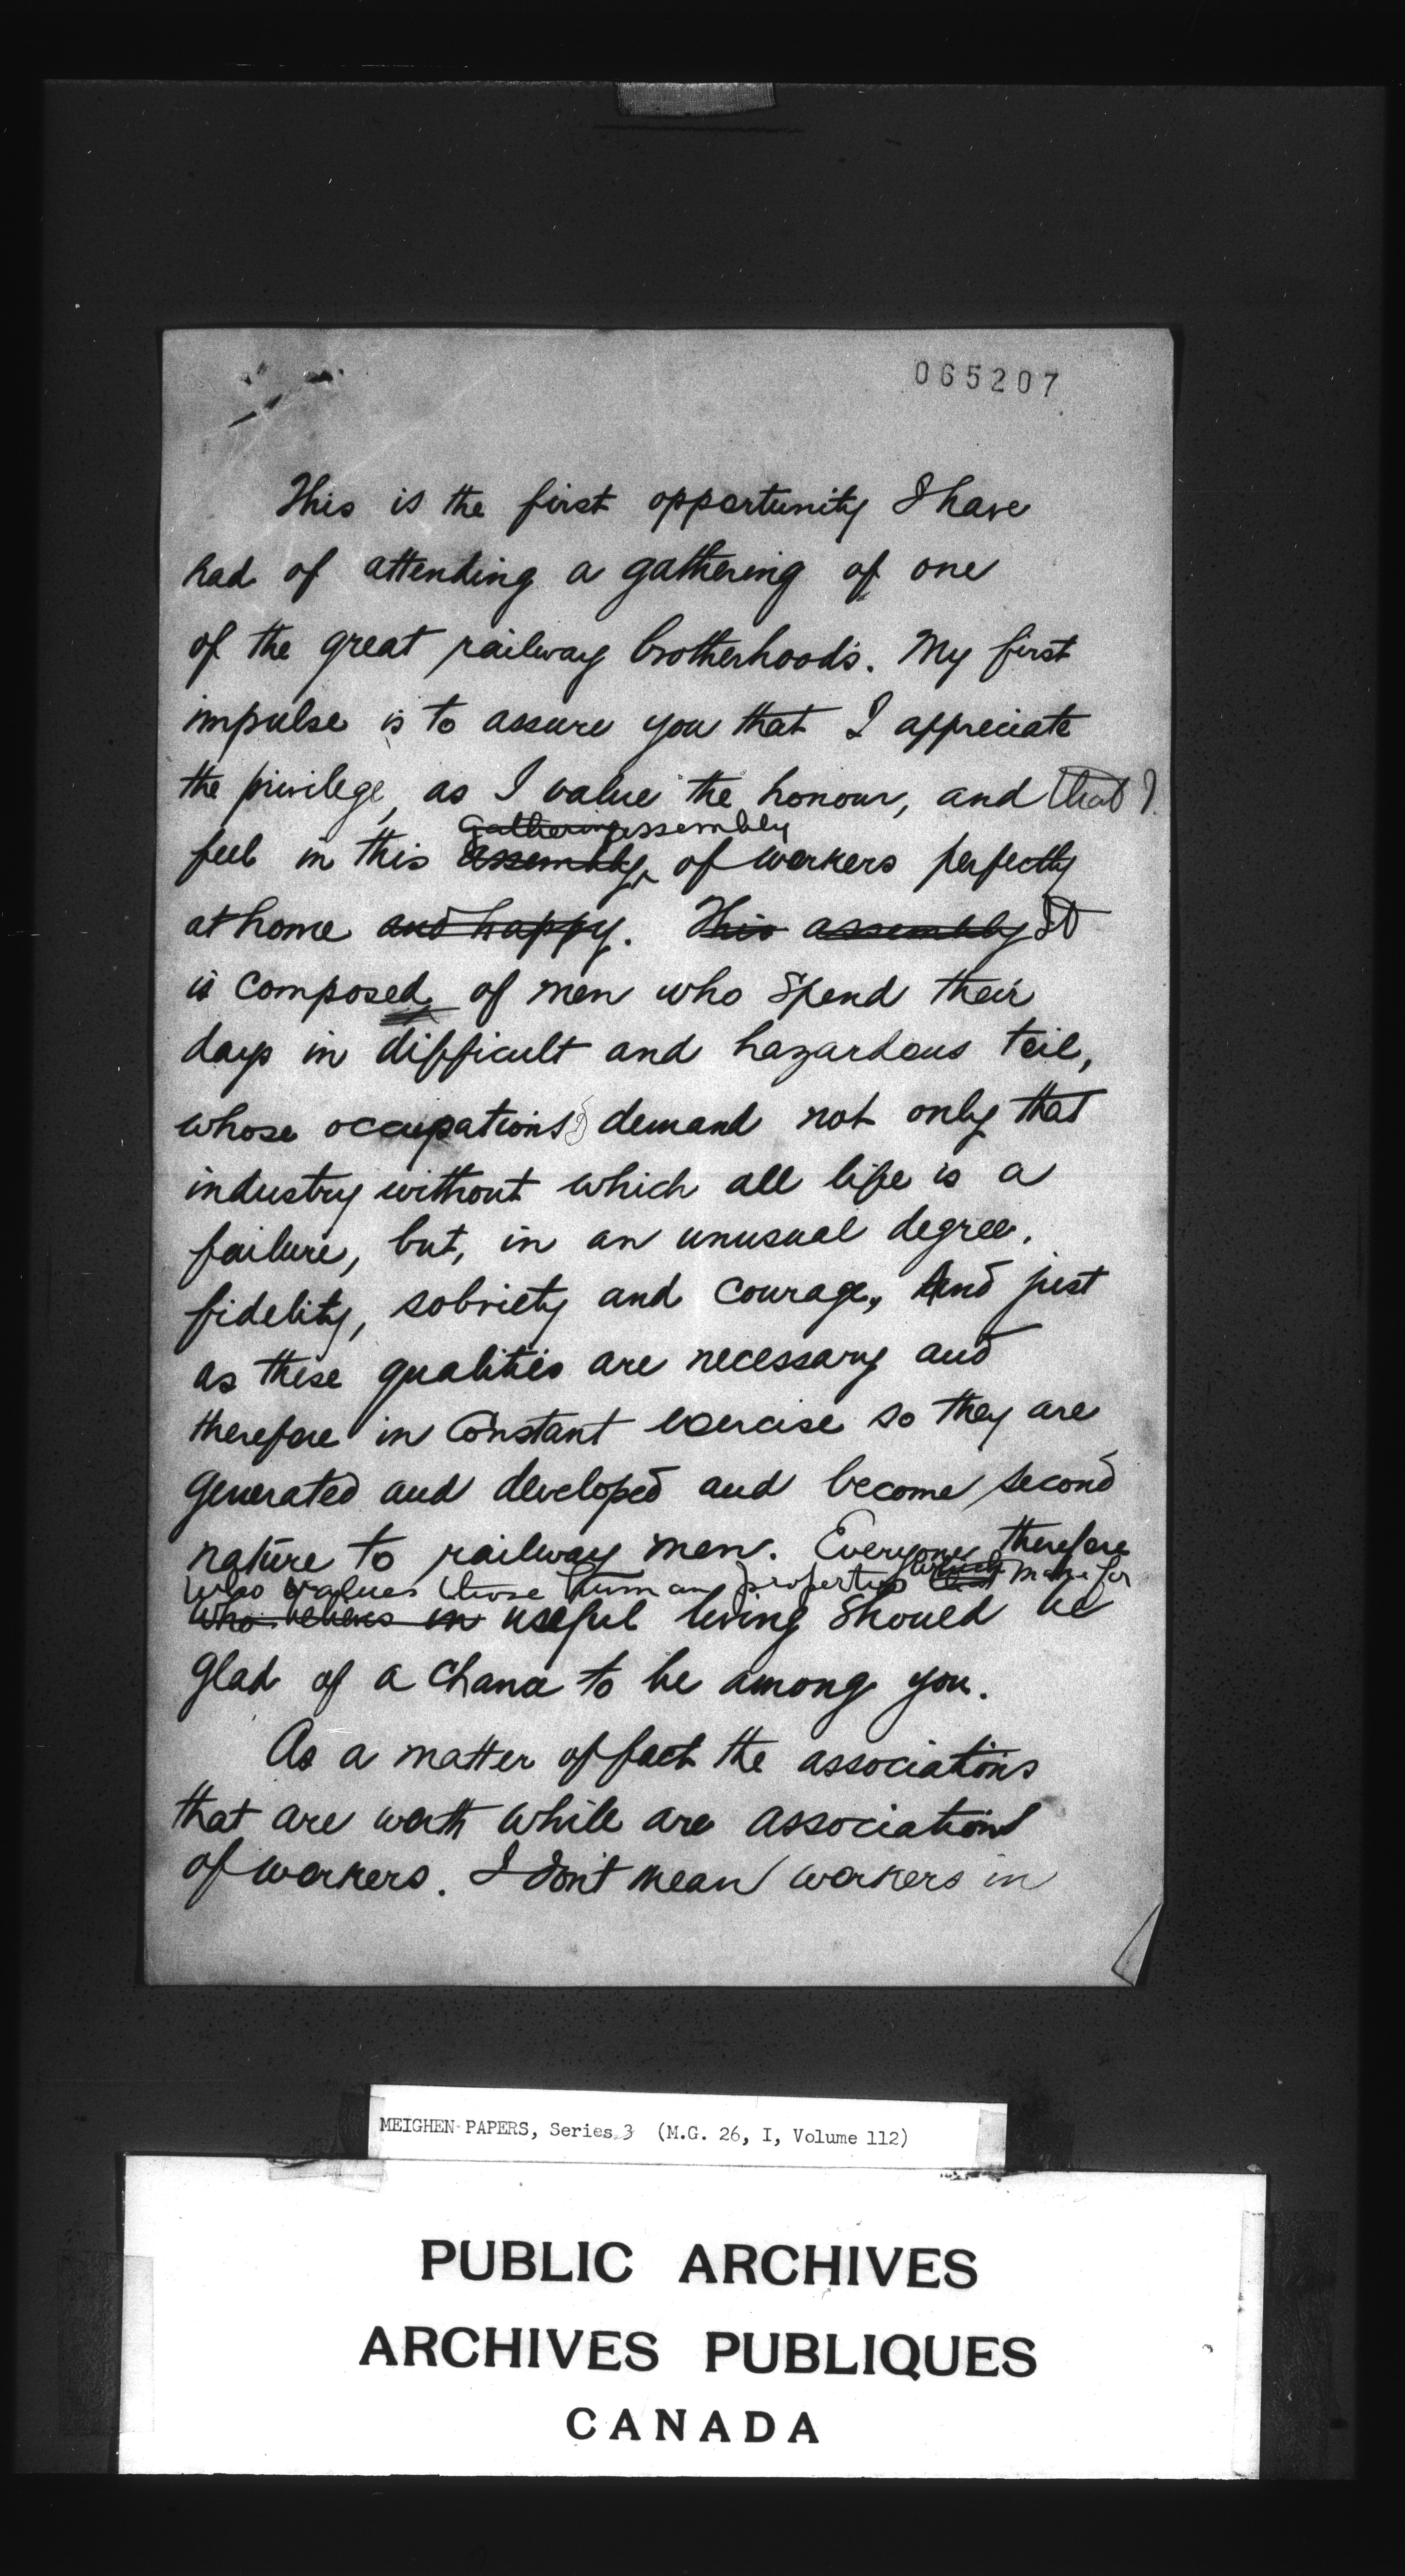 065207
This is the first opportunity I have
had of attending a gathering of one
of the great railway brotherhoods. My first
impulse is to assure you that I appreciate
the privilege, as I value the honour, and that I
gathering assembly
feel in this assembly, of workers perfectly
at home and happy. This assembly It
is composed of men who spend their
days in difficult and hazardous toil,
whose occupations demand not only that
industry without which all life is a
failure, but, in an unusual degree,
fidelity, sobriety and courage, And just
as these qualities are necessary and
therefore in constant exercise so they are
generated and developed and become second
nature to railway men. Everyone therefore
who values those human properties which that make for
who believes in useful living should be
glad of a chance to be among you.
As a matter of fact the associations
that are worth while are associations
of workers. I don't mean workers in
MEIGHEN PAPERS, Series 3 (M.G. 26, I, Volume 112)
PUBLIC ARCHIVES
ARCHIVES PUBLIQUES
CANADA